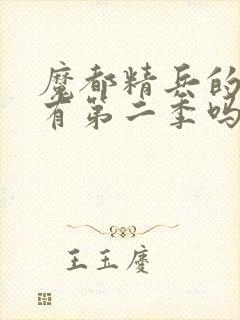 魔都精兵的
有第二季吗
王玉慶